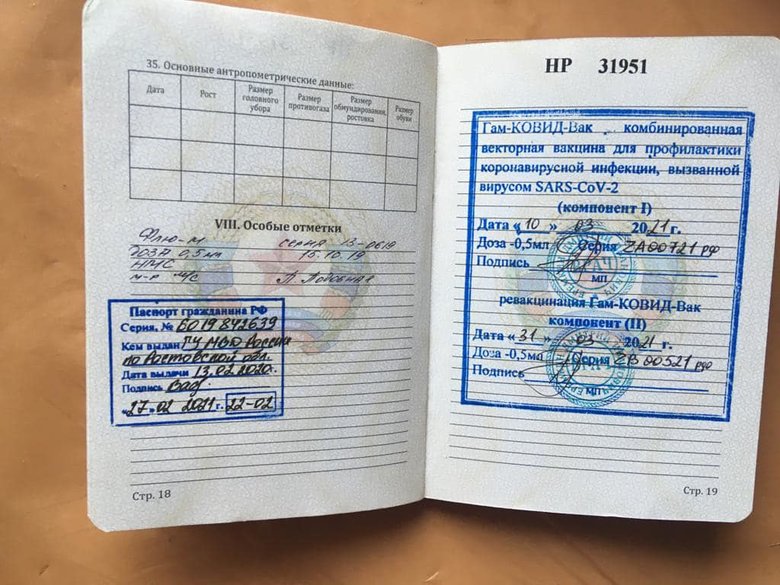 35. Основные антропометрические данные:
Дата Рост Размер головного убора Размер противогаза Размер обмундирования, ростовка Размер обуви
VIII. Особые отметки
Флю-М серия 13-0619
доза 0,5мл 15.10.19
НМС
м-р м/с
Паспорт гражданина РФ
Серия, № 6019 842639
Кем выдан ГУ МВД России
по Ростовской обл.
Дата выдачи 13.02.2020г.
Подпись
"27" 02 2021 г. 22-02
Стр. 18
НР 31951
Гам-КОВИД-Вак комбинированная
векторная вакцина для профилактики
коронавирусной инфекции, вызванной
вирусом SARS-CoV-2
(компонент I)
Дата «10» 03 2021 г.
Доза -0,5мл Серия
Подпись
МП
ревакцинация Гам-КОВИД-Вак
компонент (II)
Дата «31» 03 2021 г.
Доза -0,5мл Серия
Подпись
МП
Стр. 19